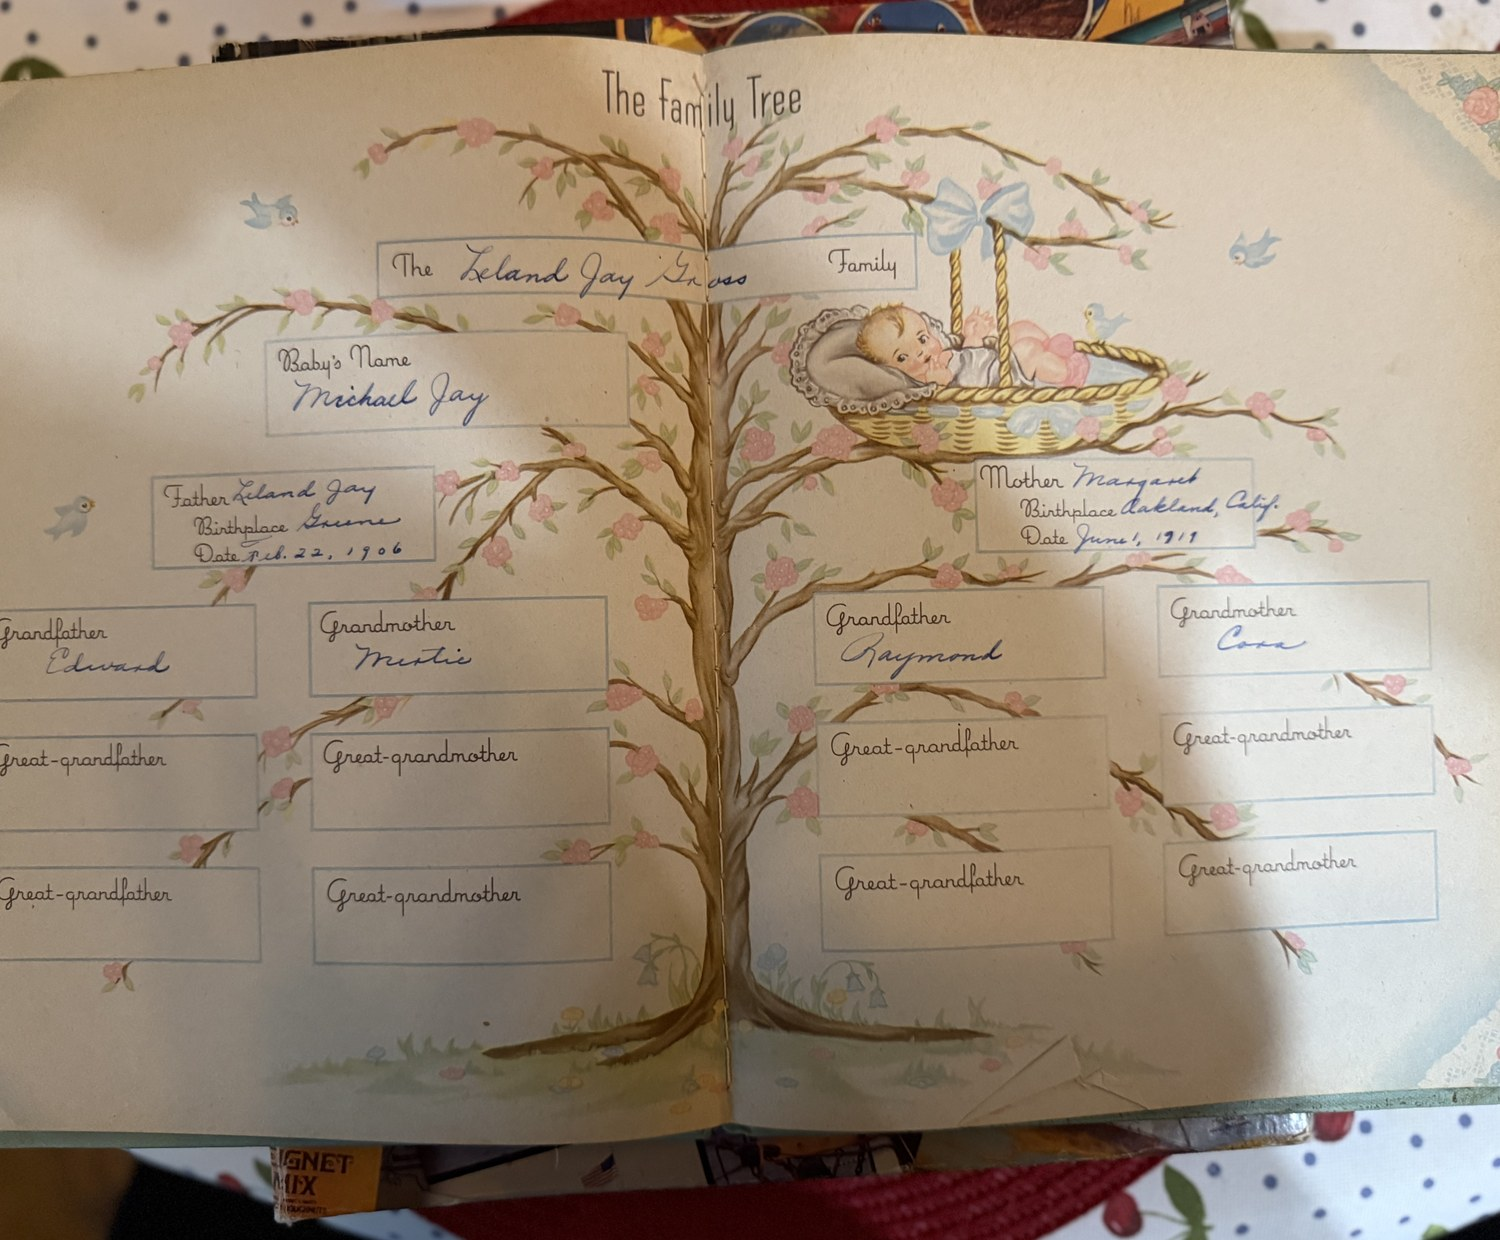 The Family Tree
The Leland Jay Gross Family
Baby's Name
Michael Jay
Father Leland Jay
Birthplace Greene
Date Feb. 22, 1906
Mother Margaret
Birthplace Oakland, Calif.
Date June 1, 1919
Grandfather
Edward
Grandmother
Mertie
Grandfather
Raymond
Grandmother
Cora
Great-grandfather
Great-grandmother
Great-grandfather
Great-grandmother
Great-grandfather
Great-grandmother
Great-grandfather
Great-grandmother
IGNET
MIX